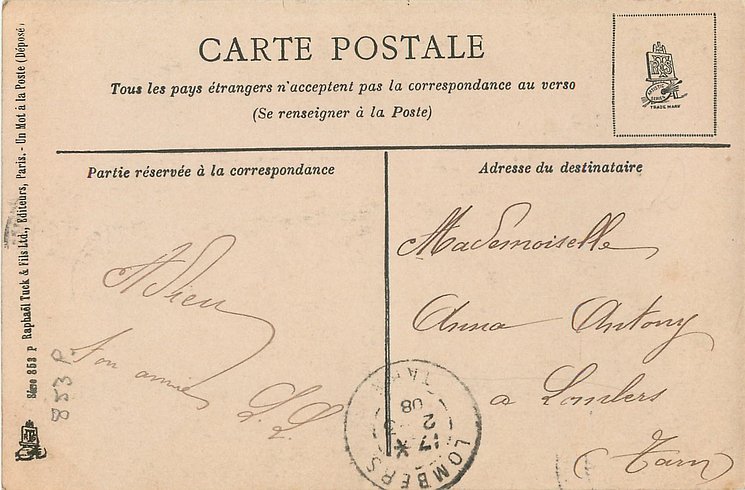 CARTE POSTALE
Tous les pays étrangers n'acceptent pas la correspondance au verso
(Se renseigner à la Poste)
ARTISTIC
SERIES
TRADE MARK
Partie réservée à la correspondance
Adieu
Ton amie
L.L.
Adresse du destinataire
Mademoiselle
Anna Antony
a Lombers
(Tarn
LOMBERS
TARN
17
2
08
Série 853 P Raphaël Tuck & Fils Ltd., Editeurs, Paris. - Un Mot à la Poste (Déposé)
853 P.